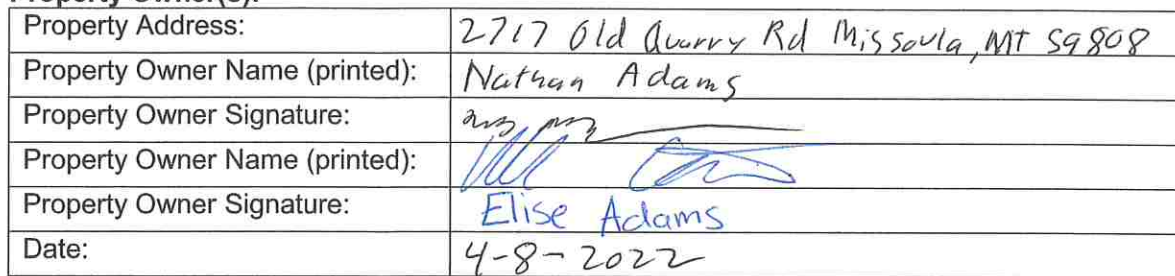 Property Owner(s):
Property Address: 2717 Old Quarry Rd Missoula, MT 59808
Property Owner Name (printed): Nathan Adams
Property Owner Signature:
Property Owner Name (printed):
Property Owner Signature: Elise Adams
Date: 4-8-2022